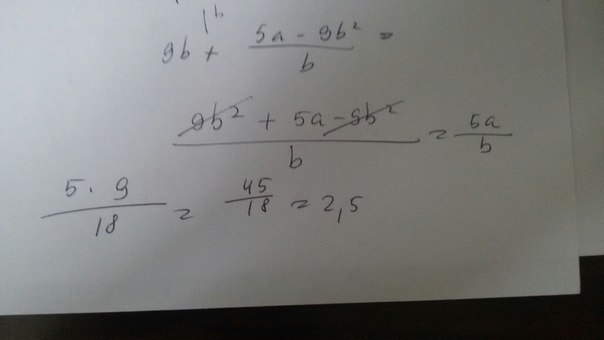 9b + |b (5a - 9b²)/b =
(9b² + 5a - 9b²)/b = 5a/b
(5 · 9)/18 = 45/18 = 2,5